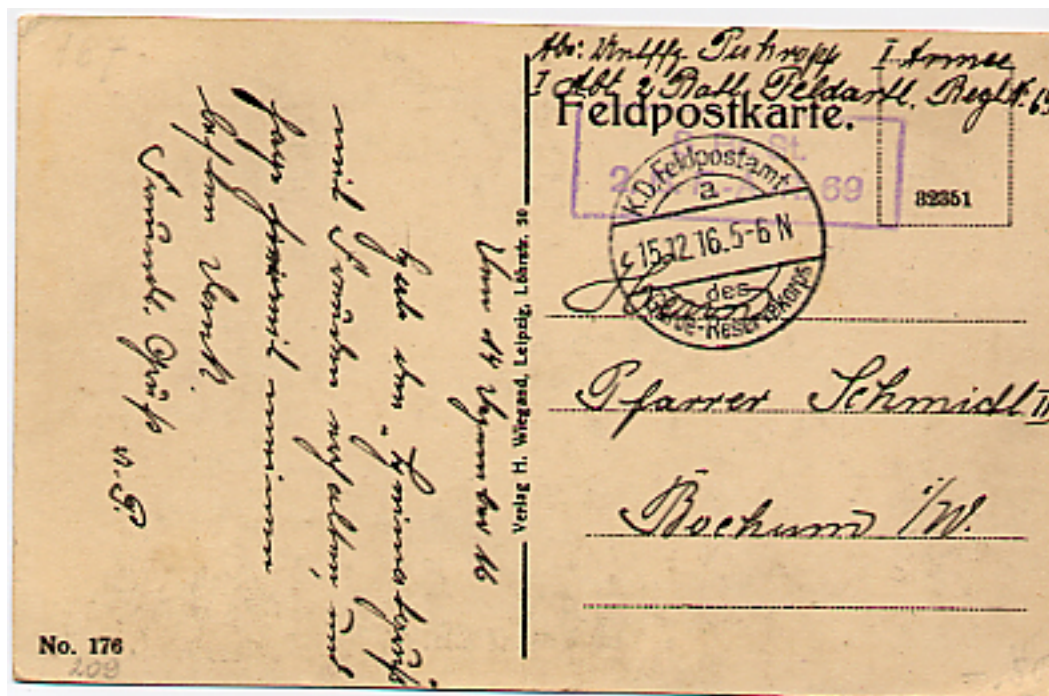 167
Abs: Untffz. Pukropp I Armee
I Abt 2 Batt. Feldartl. Regt. N. 69
Feldpostkarte.
S. B. St.
69
32351
K.D. Feldpostamt
a
15.12.16. 5-6 N
des
Garde-Reservekorps
Herrn
Pfarrer Schmidt II
Bochum i/W.
Verlag H. Wiegand, Leipzig, Löhrstr. 30
Den 14 Dezember 16
Hab den „Heimatgruß"
mit Freuden erhalten, und
sage hiermit meinen
besten Dank.
Freundl. Gruß
No. 176
209